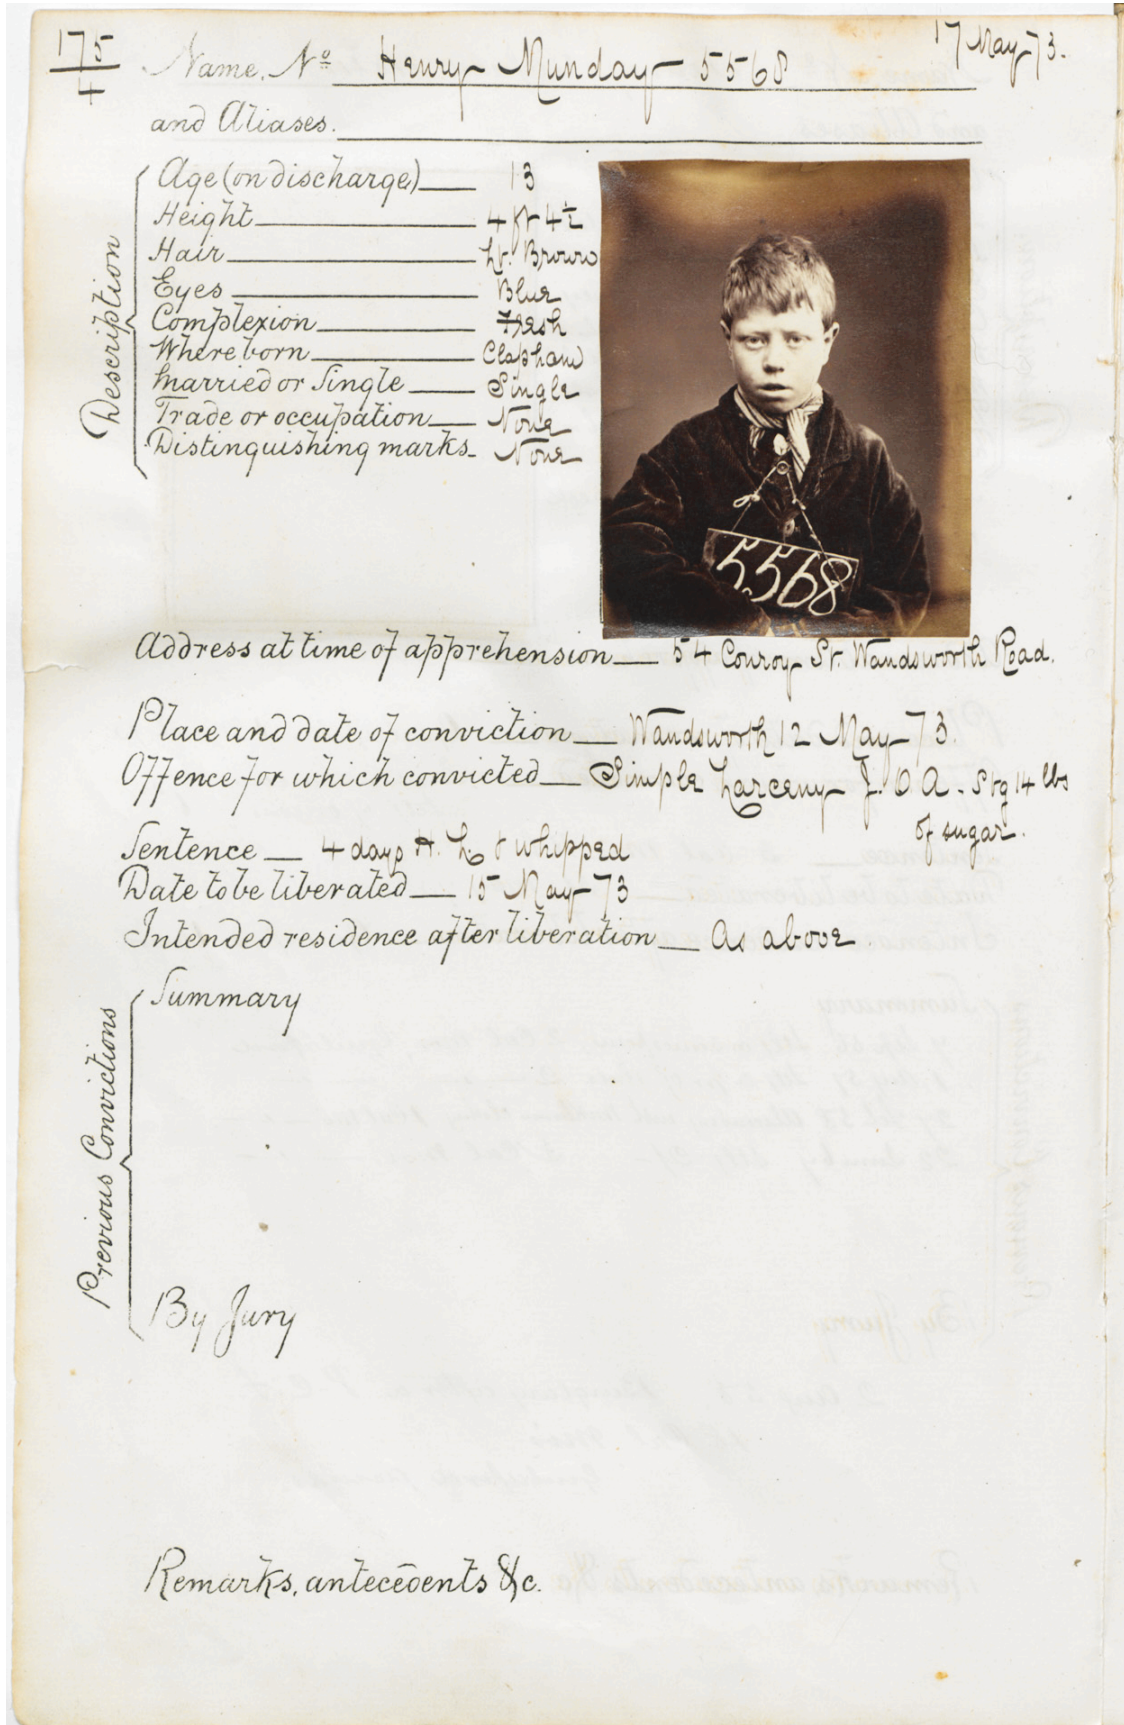 175
4
17 May 73.
Name, Nº Henry Munday 5568
and Aliases.
Description
Age (on discharge) 13
Height 4 ft 4½
Hair Lt. Brown
Eyes Blue
Complexion Fresh
Where born Clapham
Married or Single Single
Trade or occupation None
Distinguishing marks None
5568
Address at time of apprehension 54 Conroy St. Wandsworth Road.
Place and date of conviction Wandsworth 12 May 73.
Offence for which convicted Simple Larceny J. O A. Stg 14 lbs
of sugar.
Sentence 4 days H. L & whipped
Date to be liberated 15 May 73
Intended residence after liberation As above
Previous Convictions
Summary
By Jury
Remarks, antecedents &c.